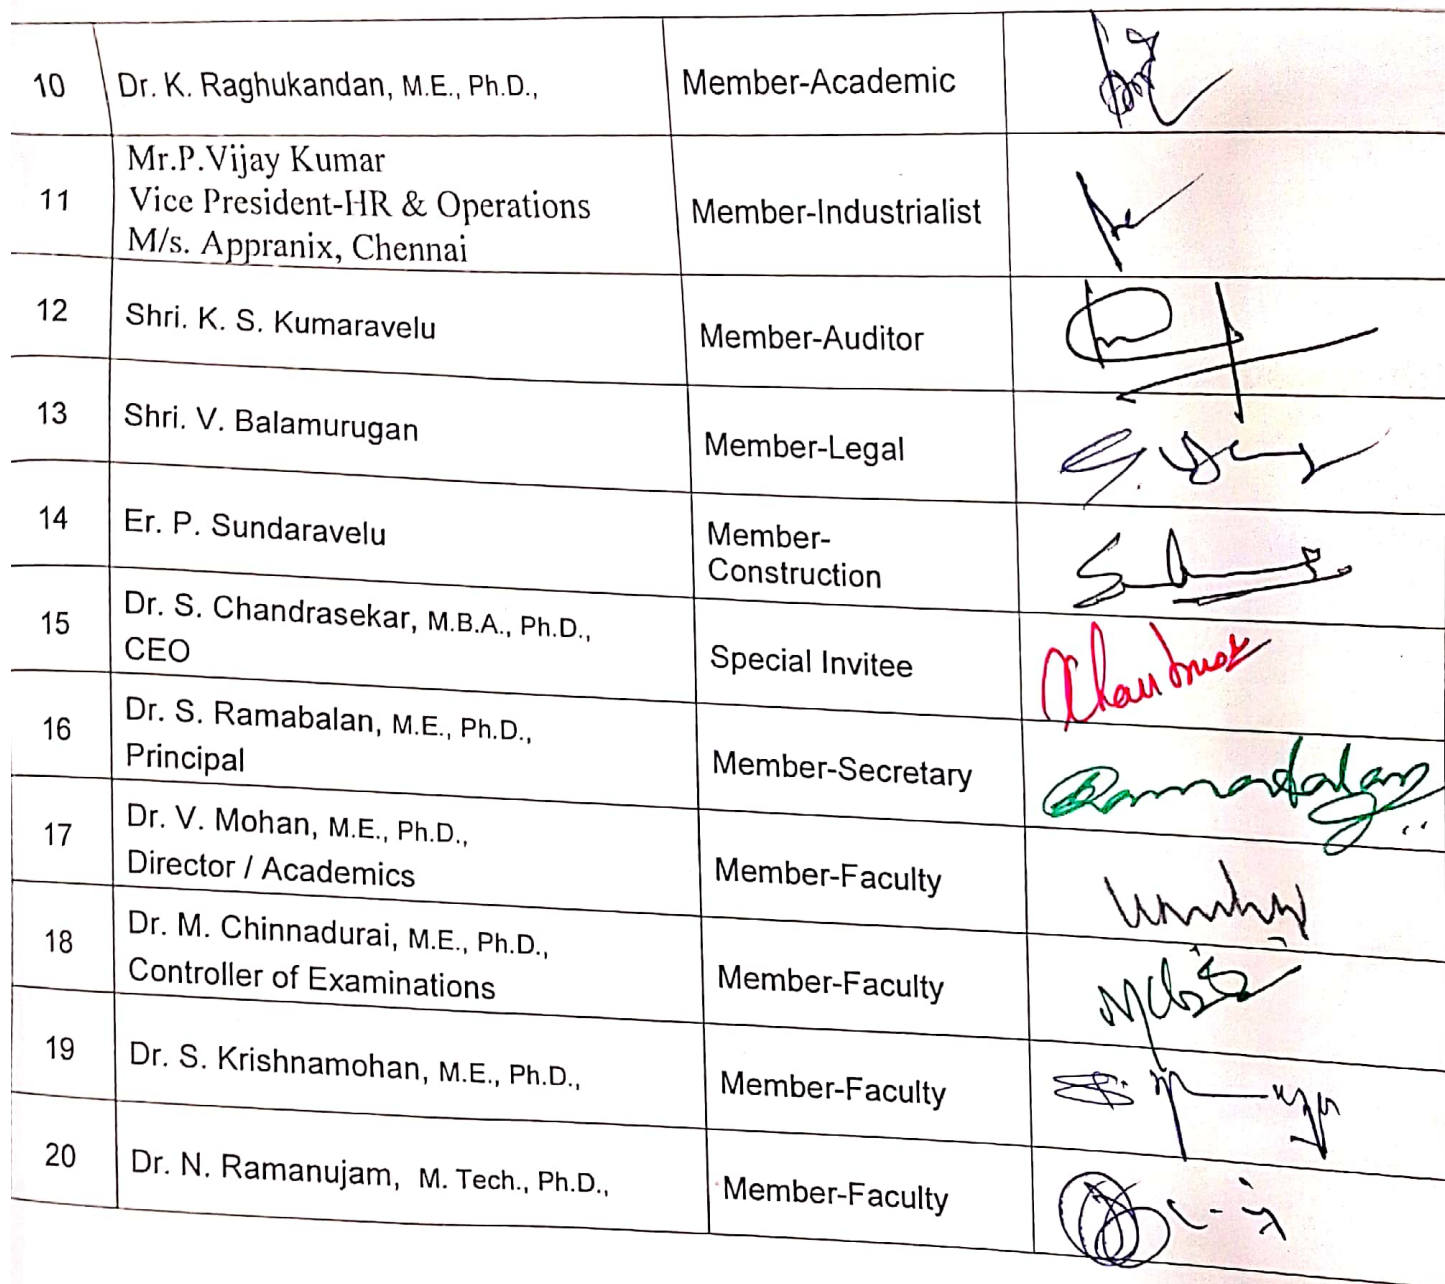 10 Dr. K. Raghukandan, M.E., Ph.D., Member-Academic
Mr.P.Vijay Kumar
11 Vice President-HR & Operations Member-Industrialist
M/s. Appranix, Chennai
12 Shri. K. S. Kumaravelu Member-Auditor
13 Shri. V. Balamurugan Member-Legal
14 Er. P. Sundaravelu Member-
Construction
15 Dr. S. Chandrasekar, M.B.A., Ph.D.,
CEO Special Invitee
16 Dr. S. Ramabalan, M.E., Ph.D.,
Principal Member-Secretary
17 Dr. V. Mohan, M.E., Ph.D.,
Director / Academics Member-Faculty
18 Dr. M. Chinnadurai, M.E., Ph.D.,
Controller of Examinations Member-Faculty
19 Dr. S. Krishnamohan, M.E., Ph.D., Member-Faculty
20 Dr. N. Ramanujam, M. Tech., Ph.D., Member-Faculty